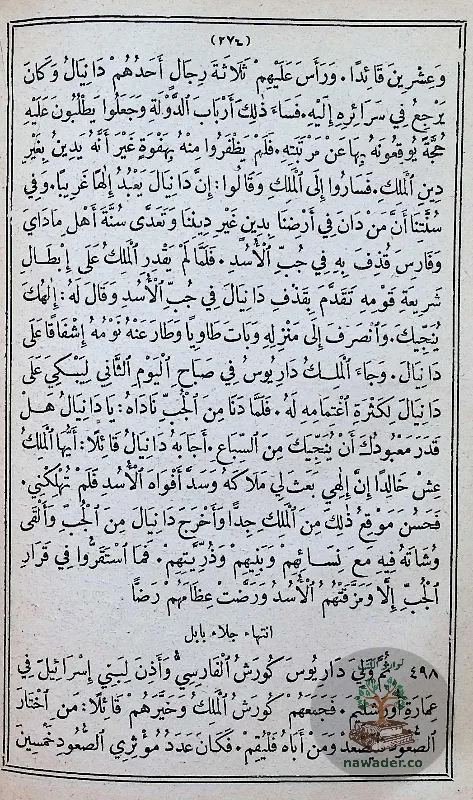 (٢٧٤)
وَعِشْرِينَ قَائِدًا. وَرَأَسَ عَلَيْهِمْ ثَلَاثَةَ رِجَالٍ أَحَدُهُمْ دَانِيَالُ وَكَانَ
يَرْجِعُ فِي سَرَائِرِهِ إِلَيْهِ. فَسَاءَ ذٰلِكَ أَرْبَابَ الدَّوْلَةِ وَجَعَلُوا يَطْلُبُونَ عَلَيْهِ
حُجَّةً يُوقِعُونَهُ بِهَا عَنْ مَرْتَبَتِهِ. فَلَمْ يَظْفَرُوا مِنْهُ بِهَفْوَةٍ غَيْرَ أَنَّهُ يَدِينُ بِغَيْرِ
دِينِ ٱلْمَلِكِ. فَسَارُوا إِلَى ٱلْمَلِكِ وَقَالُوا: إِنَّ دَانِيَالَ يَعْبُدُ إِلٰهًا غَرِيبًا. وَفِي
سُنَّتِنَا أَنَّ مَنْ دَانَ فِي أَرْضِنَا بِدِينٍ غَيْرِ دِينِنَا وَتَعَدَّى سُنَّةَ أَهْلِ مَادَايَ
وَفَارِسَ قُذِفَ بِهِ فِي جُبِّ ٱلْأُسْدِ. فَلَمَّا لَمْ يَقْدِرِ ٱلْمَلِكُ عَلَى إِبْطَالِ
شَرِيعَةِ قَوْمِهِ تَقَدَّمَ بِقَذْفِ دَانِيَالَ فِي جُبِّ ٱلْأُسْدِ وَقَالَ لَهُ: إِلٰهُكَ
يُنَجِّيكَ. وَٱنْصَرَفَ إِلَى مَنْزِلِهِ وَبَاتَ طَاوِيًا وَطَارَ عَنْهُ نَوْمُهُ إِشْفَاقًا عَلَى
دَانِيَالَ. وَجَاءَ ٱلْمَلِكُ دَارِيُوسُ فِي صَبَاحِ ٱلْيَوْمِ الثَّانِي لِيَبْكِيَ عَلَى
دَانِيَالَ لِكَثْرَةِ ٱغْتِمَامِهِ لَهُ. فَلَمَّا دَنَا مِنَ ٱلْجُبِّ نَادَاهُ: يَا دَانِيَالُ هَلْ
قَدَرَ مَعْبُودُكَ أَنْ يُنَجِّيَكَ مِنَ السِّبَاعِ. أَجَابَهُ دَانِيَالُ قَائِلًا: أَيُّهَا ٱلْمَلِكُ
عِشْ خَالِدًا إِنَّ إِلٰهِي بَعَثَ لِي مَلَاكَهُ وَسَدَّ أَفْوَاهَ ٱلْأُسْدِ فَلَمْ تُهْلِكْنِي.
فَحَسُنَ مَوْقِعُ ذٰلِكَ مِنَ ٱلْمَلِكِ جِدًّا وَأَخْرَجَ دَانِيَالَ مِنَ ٱلْجُبِّ وَأَلْقَى
وُشَاتَهُ فِيهِ مَعَ نِسَائِهِمْ وَبَنِيهِمْ وَذُرِّيَّتِهِمْ. فَمَا ٱسْتَقَرُّوا فِي قَرَارِ
ٱلْجُبِّ إِلَّا وَمَزَّقَتْهُمُ ٱلْأُسْدُ وَرَضَّتْ عِظَامَهُمْ رَضًّا
انتهاء جلاء بابل
٤٩٨ ثُمَّ وَلِيَ دَارِيُوسَ كُورَشُ ٱلْفَارِسِيُّ وَأَذِنَ لِبَنِي إِسْرَائِيلَ فِي
عِمَارَةِ أُورَشَلِيمَ. فَجَمَعَهُمْ كُورَشُ ٱلْمَلِكُ وَخَيَّرَهُمْ قَائِلًا: مَنِ ٱخْتَارَ
ٱلصُّعُودَ فَلْيَصْعَدْ وَمَنْ أَبَاهُ فَلْيُقِمْ. فَكَانَ عَدَدُ مُؤْثِرِي الصُّعُودِ خَمْسِينَ
نوادر الكتب
nawader.co